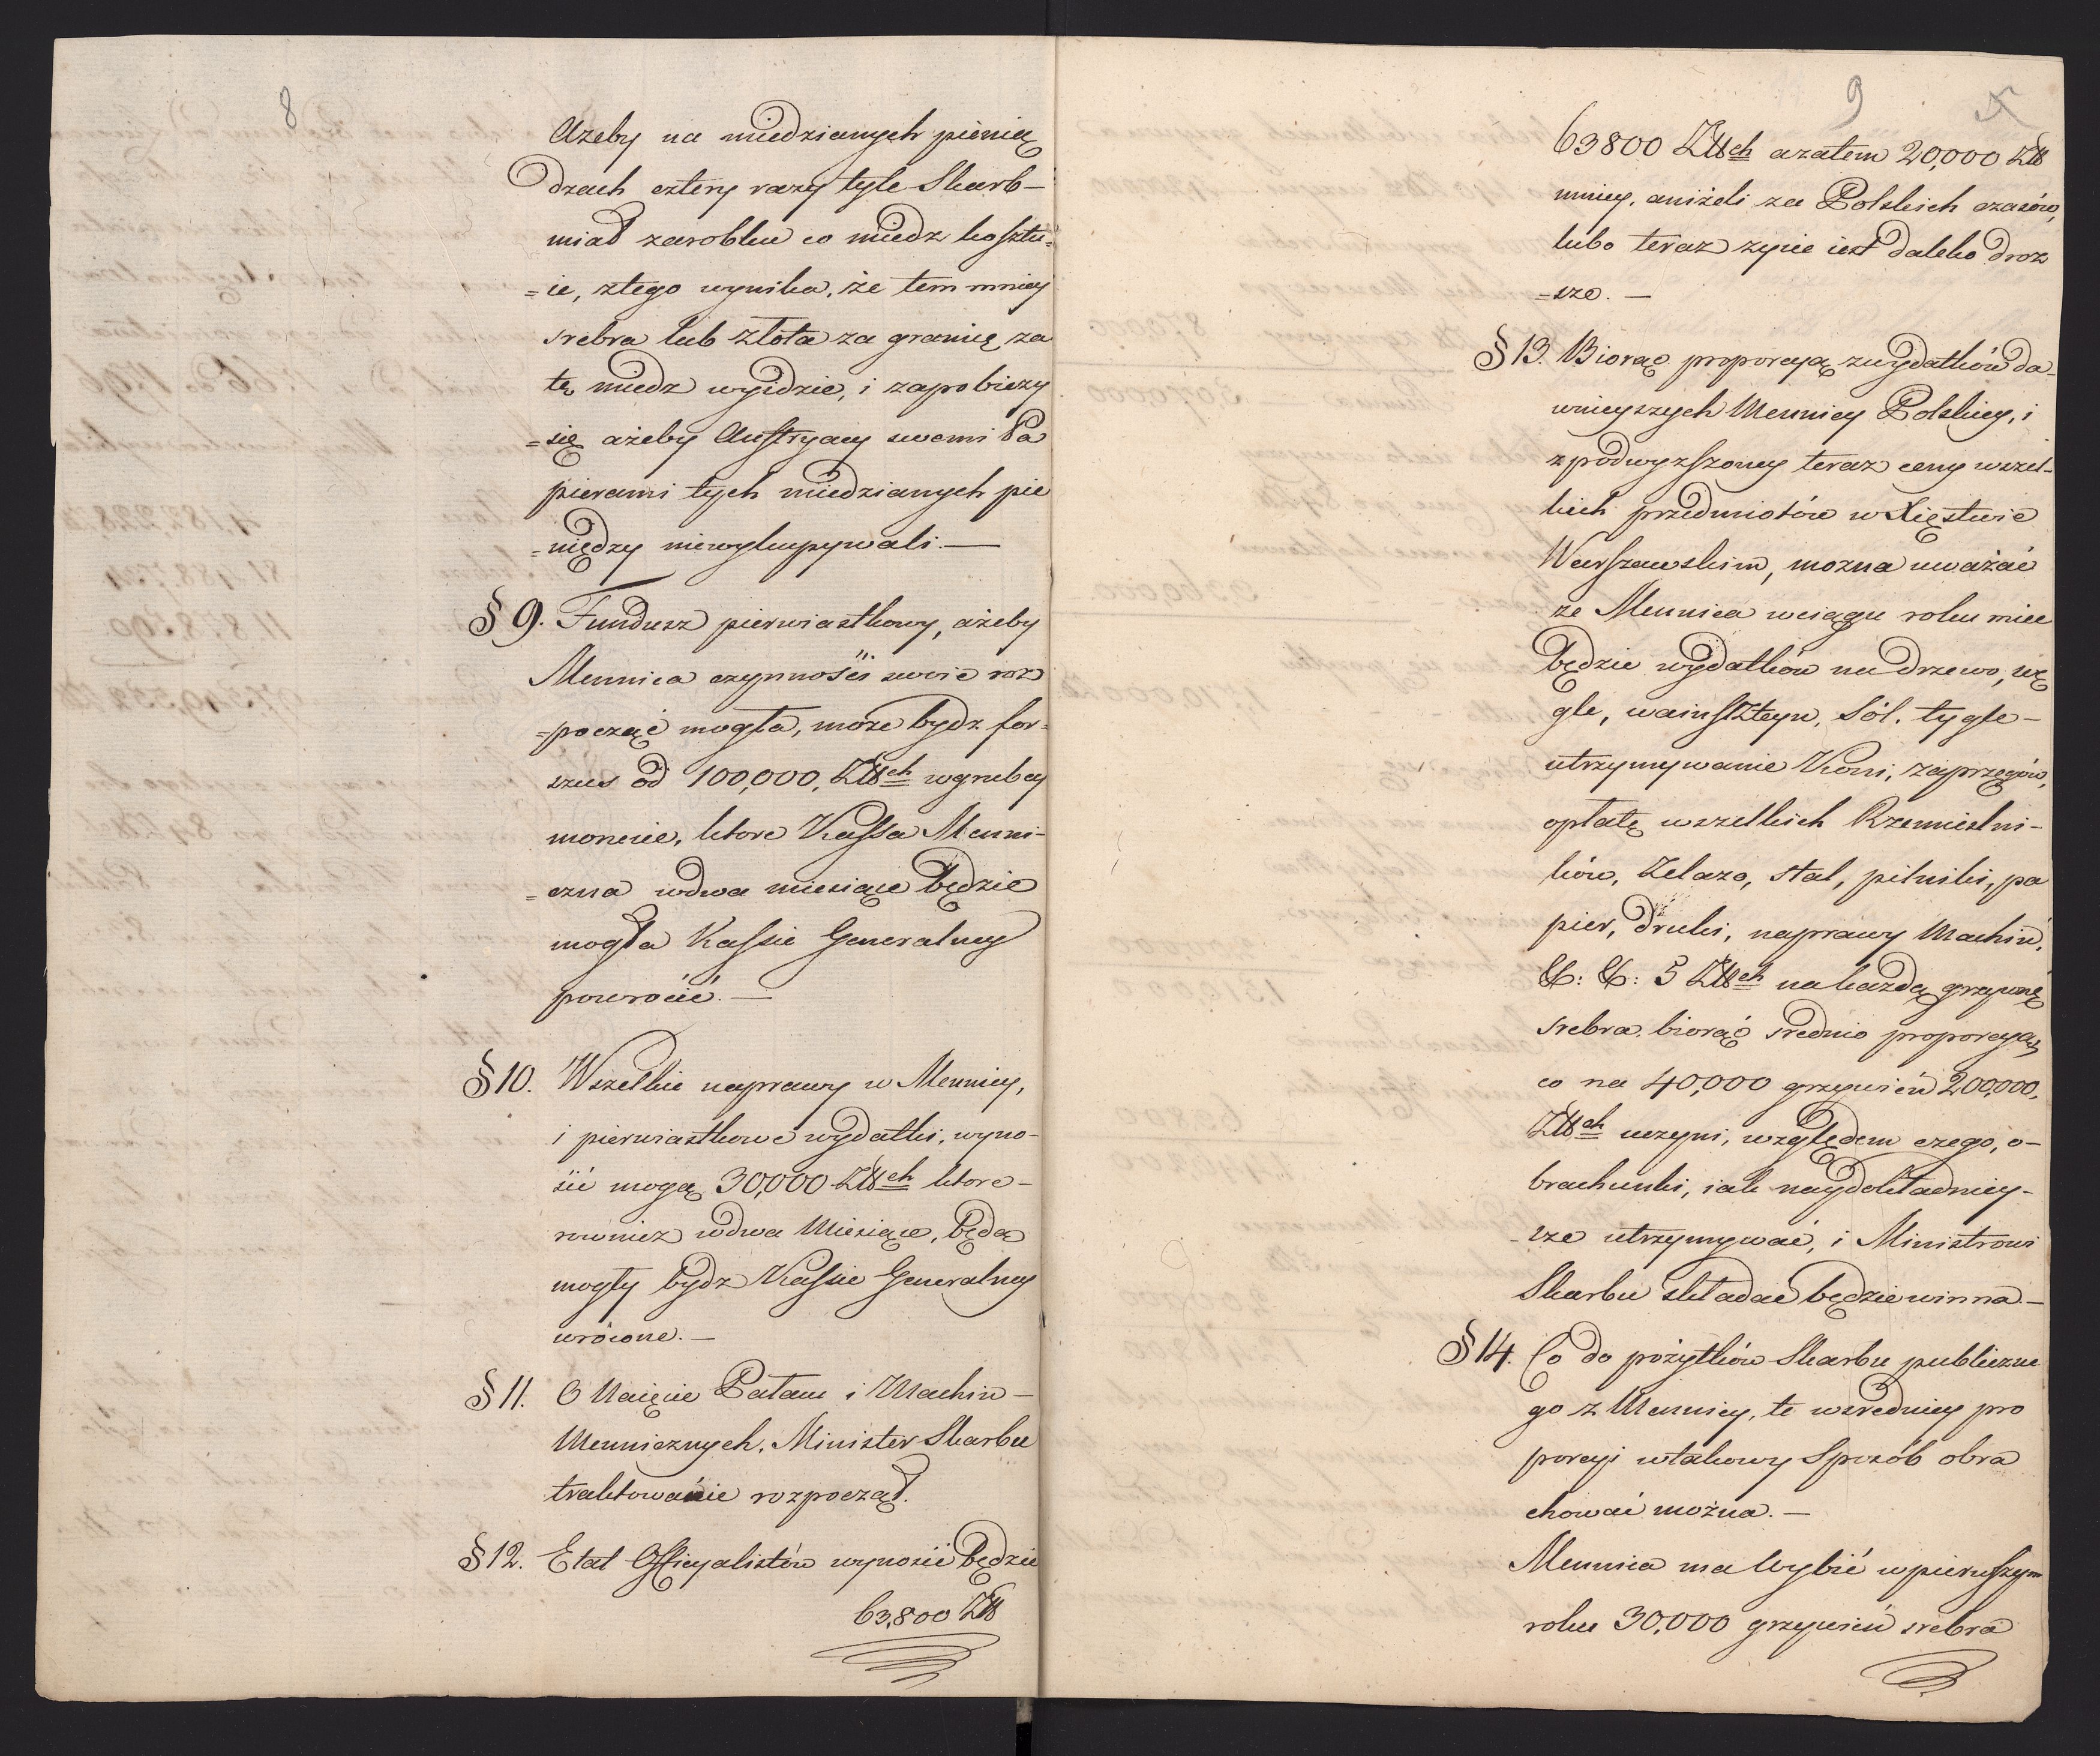 8
Ażeby na miedzianych pienią
dzach cztery razy tyle Skarb –
miał zarobku co miedz kosztu=
=ie, ztego wynika, że tem mniey
srebra lub złota za granicę za
tę miedz wyidzie, i zapobieży
=się ażeby Austryacy swemi Pa
pierami tych miedzianych pie
=niędzy niewykupywali. —
§ 9. Fundusz pierwiastkowy, ażeby
Mennica czynności swoie roz
=począć mogła, może bydz for=
szus od 100,000, Złłch wgrubey
monecie, ktore Kassa Menni-
=czna wdwa miesiące będzie
mogła Kassie Generalney
powrócić. —
§ 10. Wszelkie naprawy w Mennicy,
i pierwiastkowe wydatki, wyno-
sić mogą 30,000 Złłch ktore –
rownież wdwa Miesiące, będą
mogły bydz Kassie Generalney
wrócone. —
§ 11. O Naięcie Pałacu i Machin –
Menniczných, Minister Skarbu
traktowanie rozpoczął.
§ 12. Etat Officyalistów wynosić będzie
63,800 Złł
9
63800 Złłch azatem 20,000 Złł
mniey, aniżeli za Polskich czasów,
lubo teraz zycie iest daleko droz
=sze. —
§ 13. Biorąc proporcyą zwydatków da-
wnieyszych Mennicy Polskiey, i
zpodwyższoney teraz ceny wszel-
kich przedmiotów w Xięstwie
Warszawskim, mozna uważać
ze Mennica wciągu roku miec
będzie wydatków na drzewo, wę
gle, wainszteyn, sól, tygle –
utrzymywanie Koni, zaprzęgów,
opłatę wszelkich Rzemieslni-
ków, Zelazo, stal, pilniki, pa
pier, druki, naprawy Machin,
&: &: 5 Złłch na każdą grzywnę
srebra, biorąc srednio proporcyą,
co na 40,000 grzywien 200,000,
Złłch uczyni, względem czego, o-
brachunki, iak naydokładniey-
-sze utrzymywać, i Ministrowi
Skarbu składac będzie winna. —
§ 14. Co do pożytków Skarbu publiczne
go z Mennicy, te wsredniey pro
porcyi wtakowy Sposób obra
chować można. —
Mennica ma Wybić wpierwszym
roku 30,000 grzywień srebra